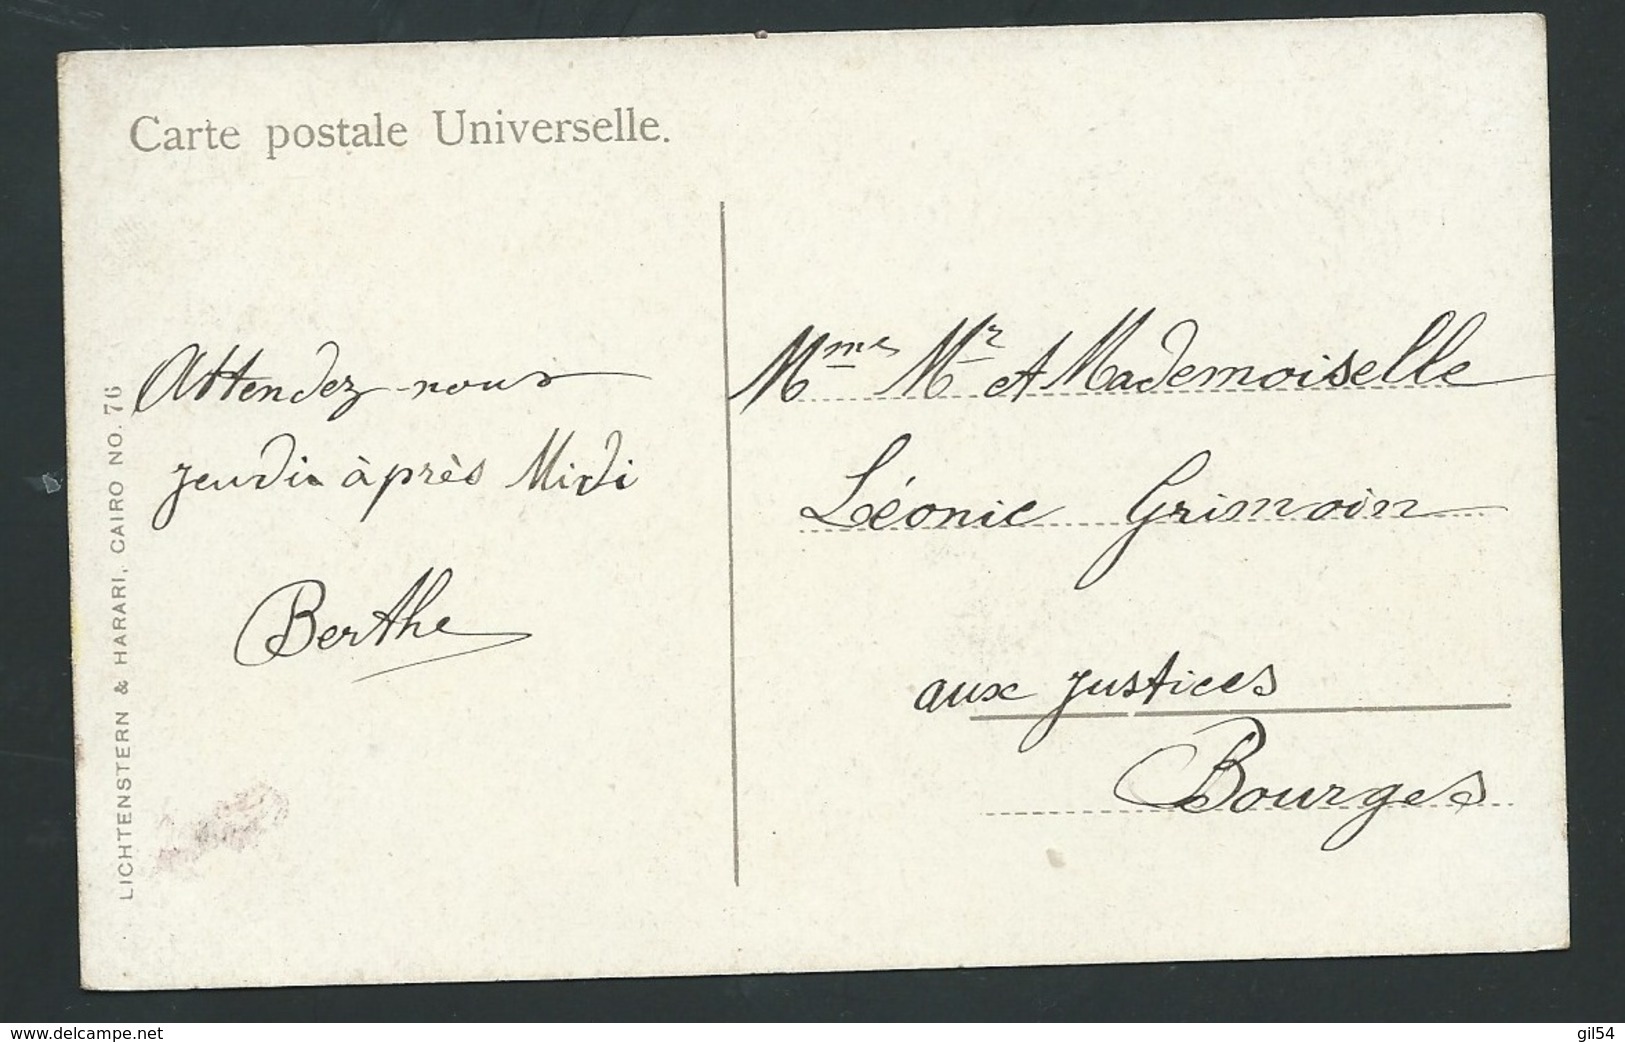 Carte postale Universelle.
Attendez-nous
jeudi à près Midi
Berthe
LICHTENSTERN & HARARI, CAIRO NO. 76
Mme Mr et Mademoiselle
Léonie Grimoin
aux justices
Bourges
www.delcampe.net
gil54